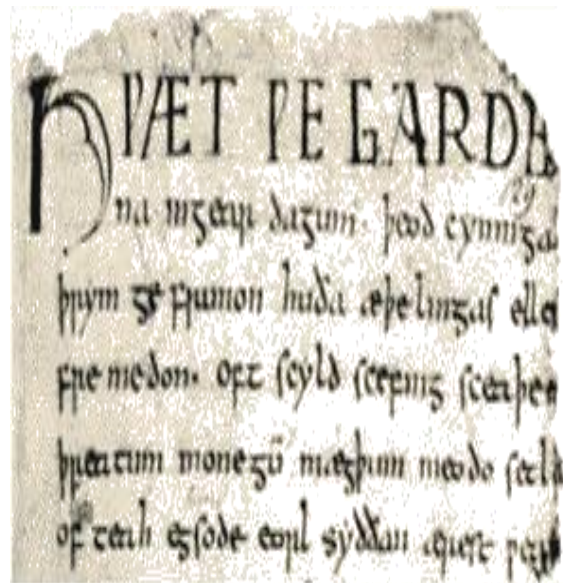 HǷÆT ǷE GARDE
na ingear dagum. þeod cyninga
þrym ge frunon huða æþelingas elle
fremedon. oft scyld scefing sceaþe
þreatum monegū mægþum meodo setla
of teah egsode eorl syððan ærest